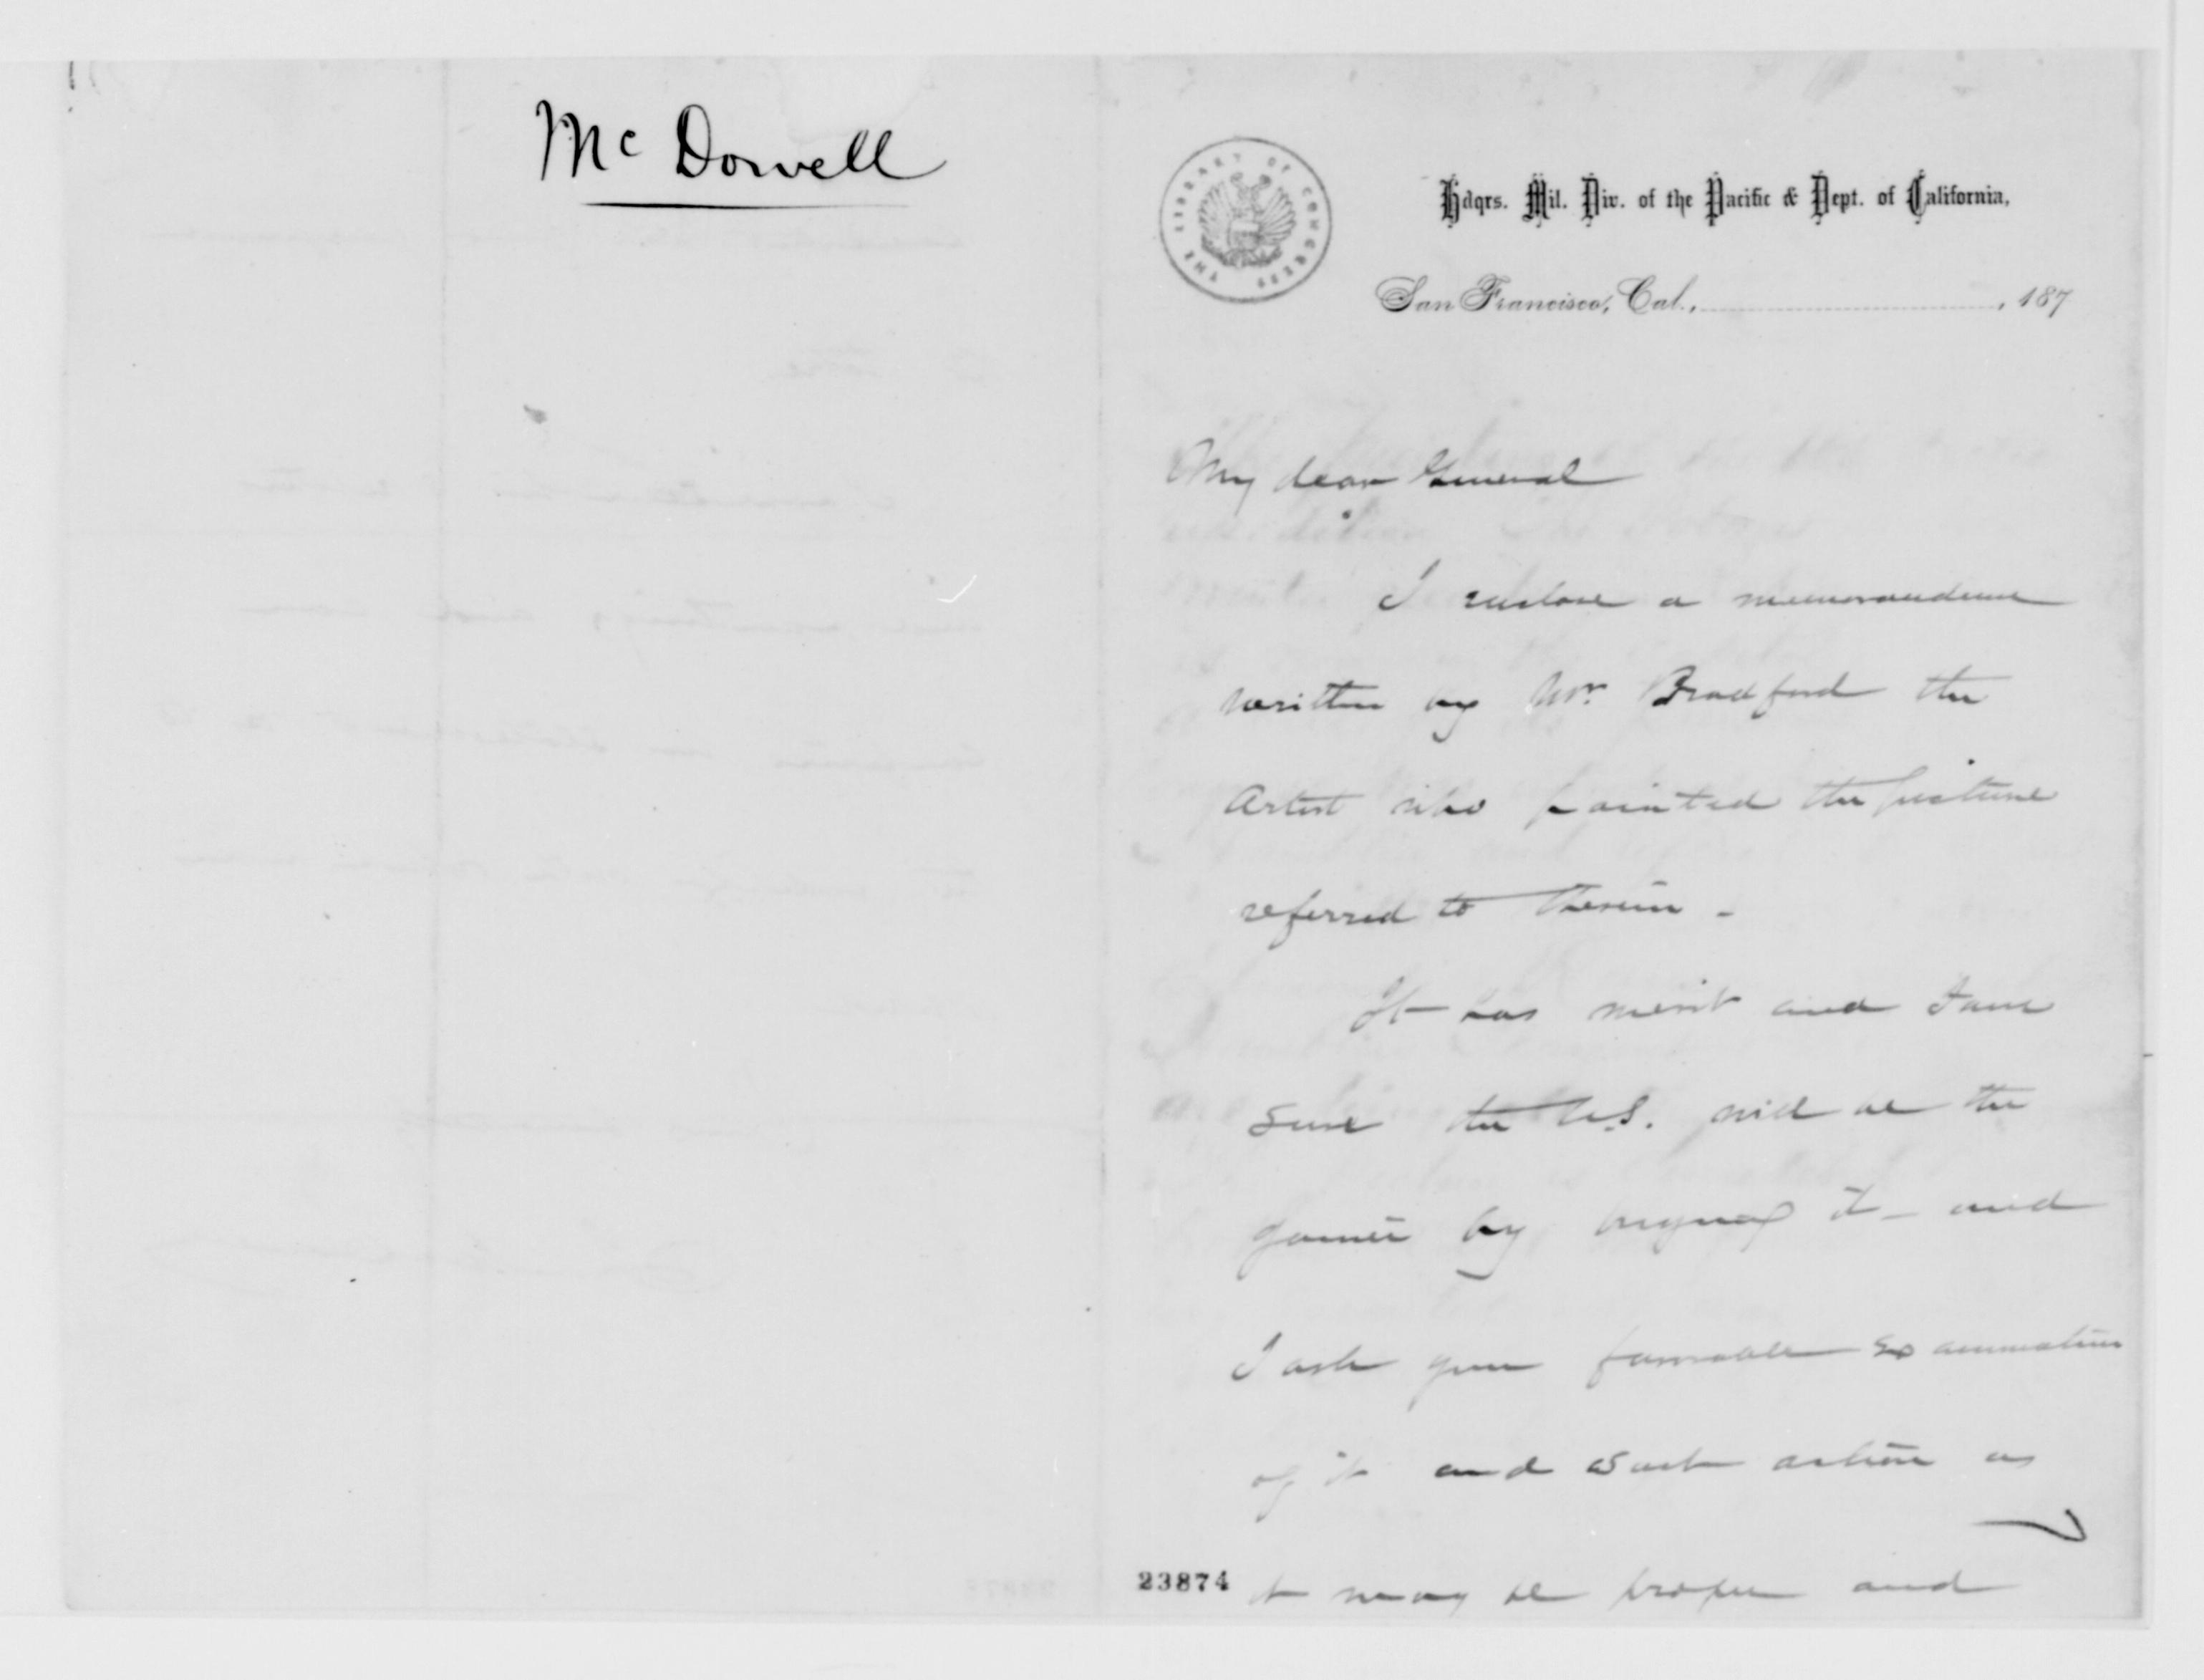 Mc Dowell
THE LIBRARY OF CONGRESS
Hdqrs. Mil. Div. of the Pacific & Dept. of California,
San Francisco, Cal., , 187
My dear General
I enclose a memorandum
written by Mr. Bradford the
Artist who painted the picture
referred to therein -
It has merit and I am
sure the U.S. will be the
gainer by buying it - and
I ask your favorable examination
of it and such action as
it may be proper and
23874